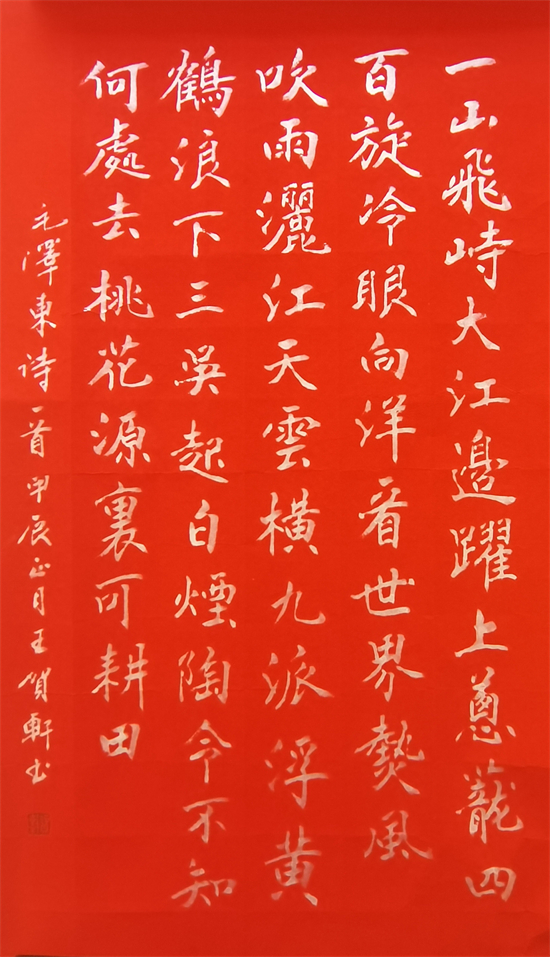 一山飛峙大江邊躍上蔥蘢四
百旋冷眼向洋看世界熱風
吹雨灑江天雲橫九派浮黃
鶴浪下三吳起白煙陶令不知
何處去桃花源裏可耕田
毛澤東诗一首甲辰正月王贺軒书